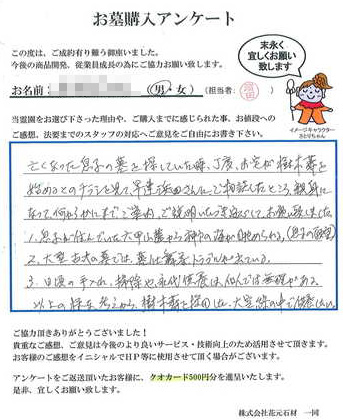 お墓購入アンケート
この度は、ご成約有り難う御座いました。
今後の商品開発、従業員成長の為にご協力お願い致します。
末永く
宜しくお願い
致します
お名前: (男・女) (担当者:
当霊園をお選び下さった理由や、ご購入までに感じられた事、お値段への
ご感想、法要までのスタッフの対応へご意見をご自由にお書き下さい。
イメージキャラクター
さとりちゃん
亡くなった息子の墓を探していた時、丁度、お宅が樹木葬を
始めるとのチラシを見て、早速浜田さんにご相談したところ、親身に
なって何から何までご案内、ご説明いただき
1. 息子が住んでいた六甲山麓から神戸の海が眺められる、(息子の
2. 大型 の墓では、 トラブルが
3. 日頃の手入れ、掃除や永代供養は個人では無理がある。
以上の 考えから、樹木葬を採用した。大
ご協力頂きありがとうございました!
貴重なご感想、ご意見は今後のより良いサービス・技術向上のため活用させて頂きます。
お客様のご感想をイニシャルでHP等に使用させて頂く場合がございます。
アンケートをご返送頂いたお客様に、クオカード500円分を進呈いたします。
是非、宜しくお願い致します。
株式会社 花元石材 一同